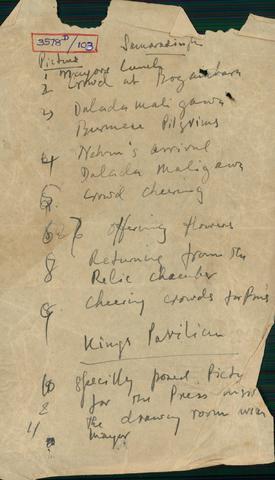 3578D/103
Samarasingh
Picture
1 Mayors Lunch
2 Crowd at Bogambara
3 Dalada Maligawa
Burmese Pilgrims
4 Nehru's arrival
Dalada Maligawa
5. Crowd cheering
6 & 7 offering flowers
8 Returning from the
Relic chamber
9 Cheering crowds for
Kings Pavilion
10 specially posed
for the Press
&
11 the drawing room with
Mayor